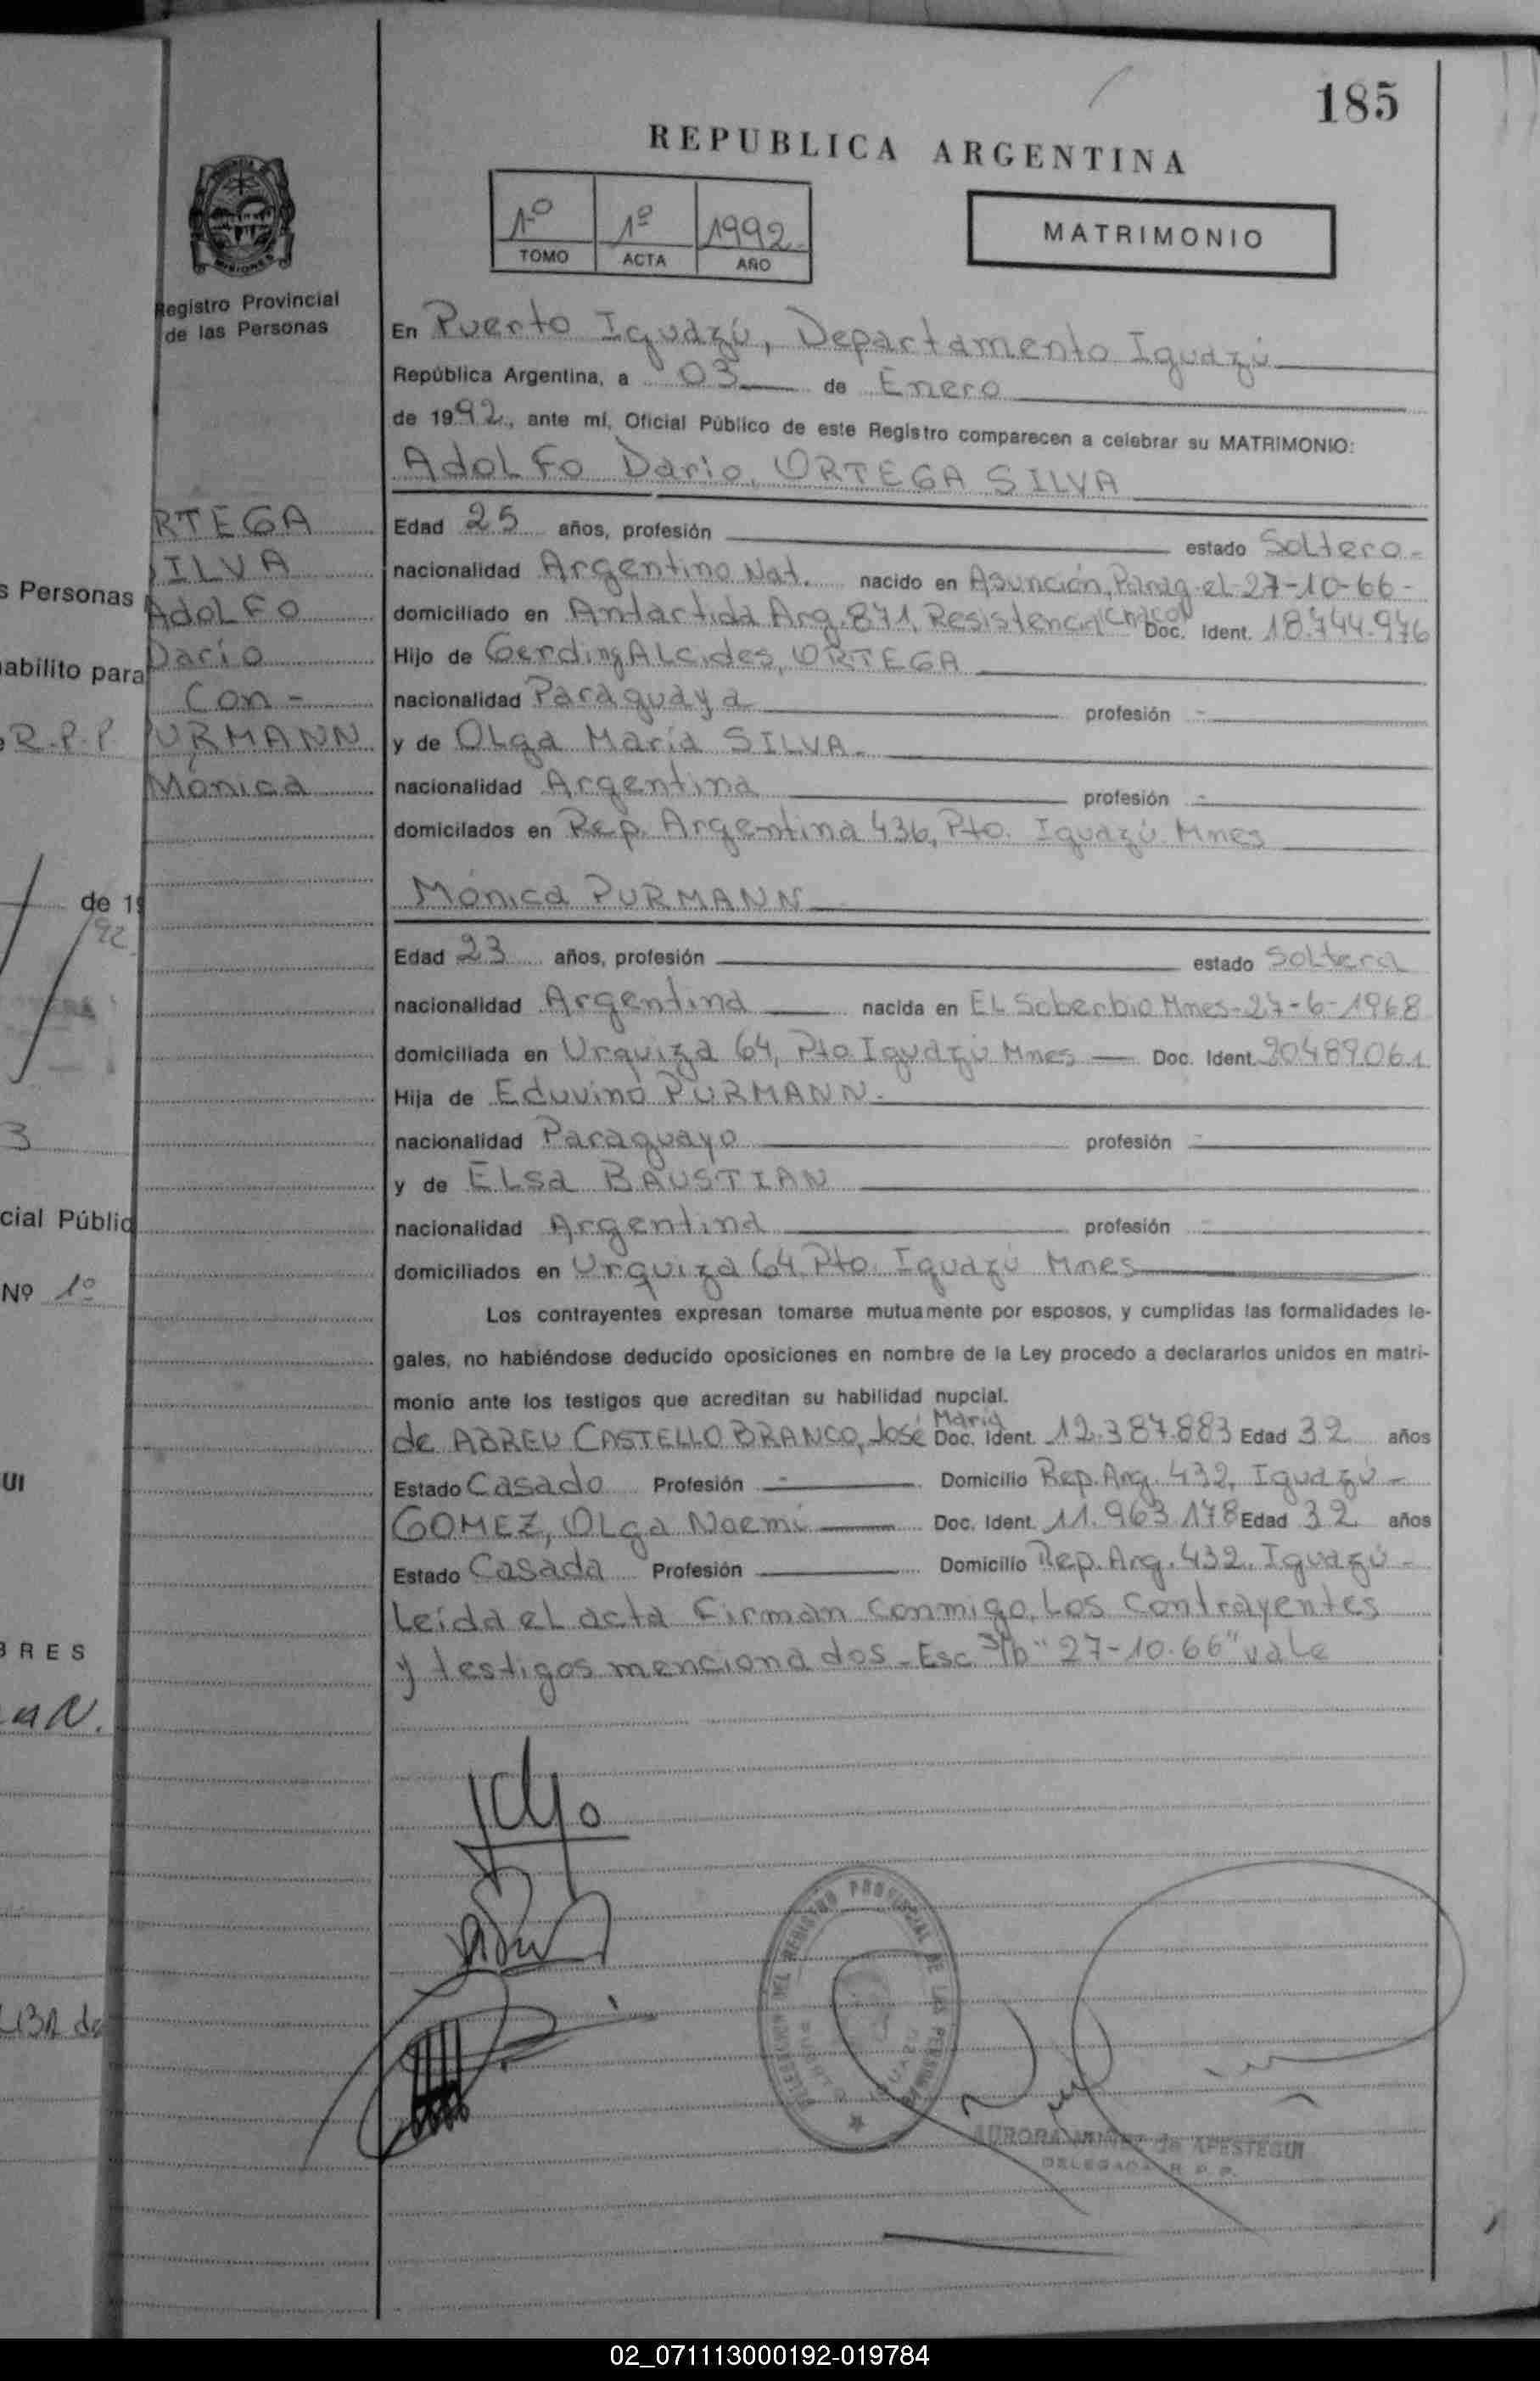 185
REPUBLICA ARGENTINA
1º 1º 1992
TOMO ACTA AÑO
MATRIMONIO
MISIONES
Registro Provincial
de las Personas
En Puerto Iguazú, Departamento Iguazú
República Argentina, a 03 de Enero
de 1992, ante mí, Oficial Público de este Registro comparecen a celebrar su MATRIMONIO:
Adolfo Dario, ORTEGA SILVA
Edad 25 años, profesión estado Soltero-
nacionalidad Argentino Nat. nacido en Asunción, Parag. el 27-10-66-
domiciliado en Antartida Arg. 871, Resistencia Chaco Doc. Ident. 18.744.976
Hijo de Gerding Alcides, ORTEGA
nacionalidad Paraguaya profesión -
y de Olga María SILVA.
nacionalidad Argentina profesión -
domicilados en Rep. Argentina 436, Pto. Iguazú Mnes
Mónica PURMANN
Edad 23 años, profesión estado Soltera
nacionalidad Argentina nacida en El Soberbio Mnes-27-6-1968
domiciliada en Urquiza 64, Pto Iguazú Mnes Doc. Ident. 20489061
Hija de Eduvino PURMANN.
nacionalidad Paraguayo profesión -
y de Elsa BAUSTIAN
nacionalidad Argentina profesión -
domiciliados en Urquiza 64, Pto. Iguazú Mnes
Los contrayentes expresan tomarse mutuamente por esposos, y cumplidas las formalidades le-
gales, no habiéndose deducido oposiciones en nombre de la Ley procedo a declararlos unidos en matri-
monio ante los testigos que acreditan su habilidad nupcial.
de ABREU CASTELLO BRANCO, José María Doc. Ident. 12.387.883 Edad 32 años
Estado Casado Profesión - Domicilio Rep. Arg. 432, Iguazú-
GOMEZ, Olga Noemí Doc. Ident. 11.963.178 Edad 32 años
Estado Casada Profesión Domicilio Rep. Arg. 432, Iguazú-
Leída el acta firman conmigo, los contrayentes
y testigos mencionados - Esc s/b "27-10-66" vale
RTEGA
ILVA
Adolfo
Darío
Con-
PURMANN
Mónica
s Personas
abilito para
R.P.P.
de 19
92
3
cial Públic
Nº 1º
UI
BRES
DELEGACION DEL REGISTRO PROVINCIAL DE LAS PERSONAS
AURORA de APESTEGUI
DELEGADA R. P. P.
02_071113000192-019784